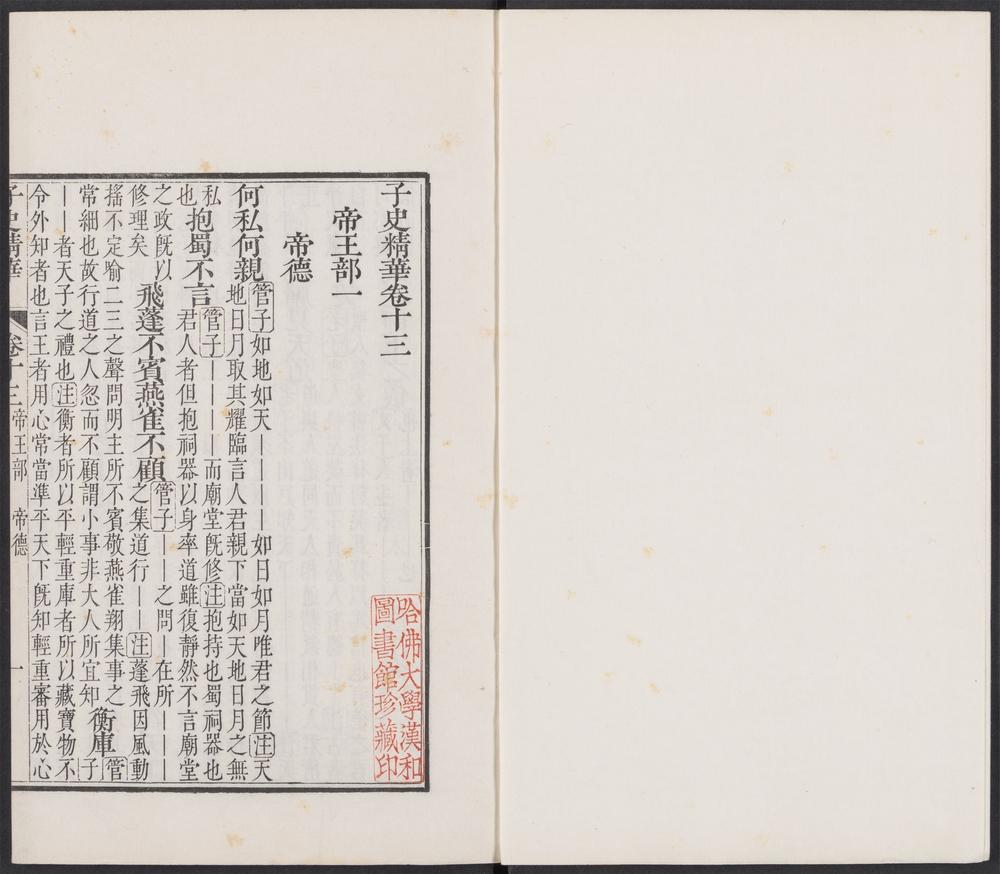 子史精華卷十三
帝王部一
帝德
何私何親
管子如地如天————如日如月唯君之節注天
地日月取其耀臨言人君親下當如天地日月之無
私
也
抱蜀不言
管子————而廟堂旣修注抱持也蜀祠器也
君人者但抱祠器以身率道雖復靜然不言廟堂
之政旣以
修理矣
飛蓬不賓燕雀不顧
管子——之問——在所————
之集道行——注蓬飛因風動
搖不定喻二三之聲問明主所不賓敬燕雀翔集事之
常細也故行道之人忽而不顧謂小事非大人所宜知
衡庫
管
子
——者天子之禮也注衡者所以平輕重庫者所以藏寶物不
令外知者也言王者用心常當準平天下旣知輕重審用於心
子史精華 卷十三 帝王部 帝德 一
哈佛大學漢和
圖書館珍藏印